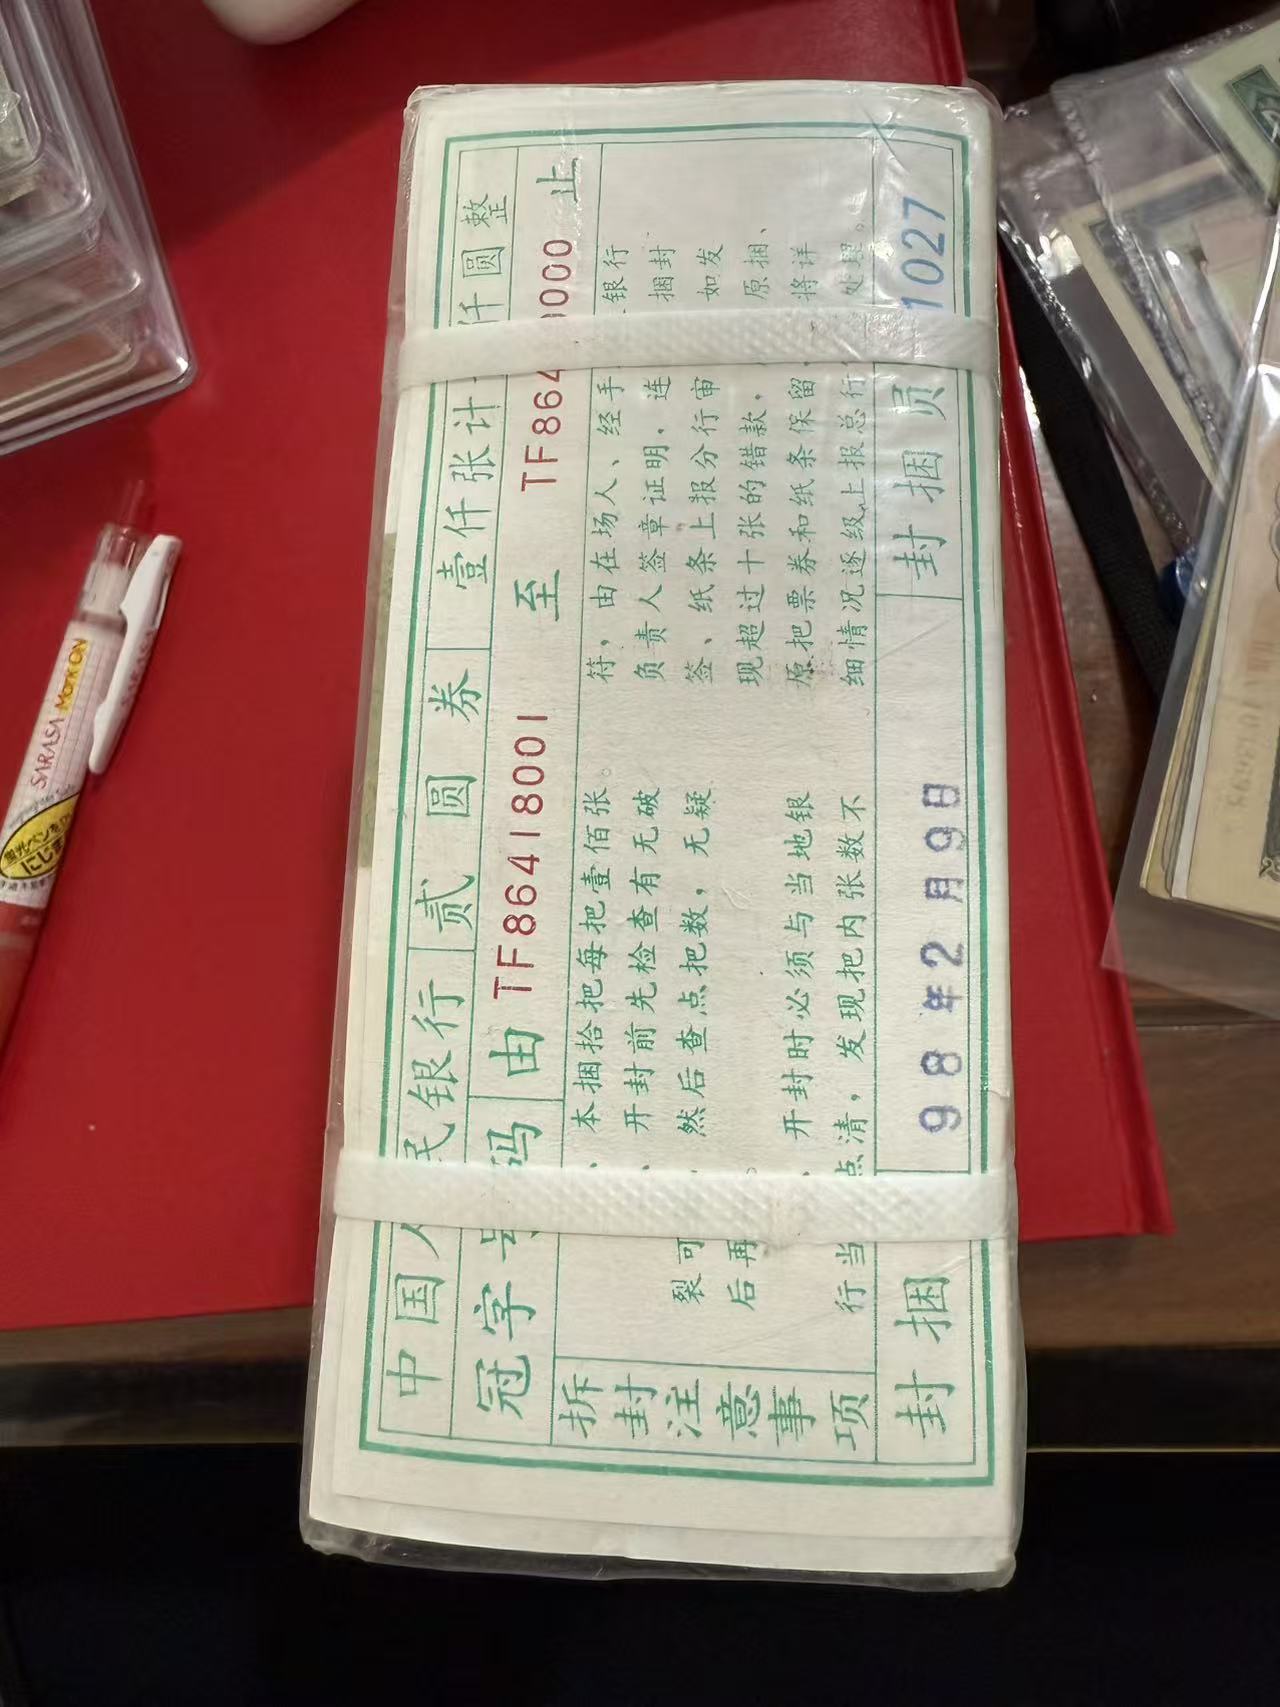 中国人民银行 贰圆券 壹仟张计 仟圆整
冠字号码 由 TF86418001 至 TF864 000 止
拆封注意事项
、本捆拾把每把壹佰张。
、开封前先检查有无破
裂可 然后查点把数，无疑
后再 。
、开封时必须与当地银
行当 点清，发现把内张数不
符，由在场人、经手 银行
负责人签章证明，连 捆封
签、纸条上报分行审 如发
现超过十张的错款， 原捆、
原把票券和纸条保留， 将详
细情况逐级上报总行 处理。
封捆 98年2月9日 封捆员 1027
SARASA Mark ON
にじま